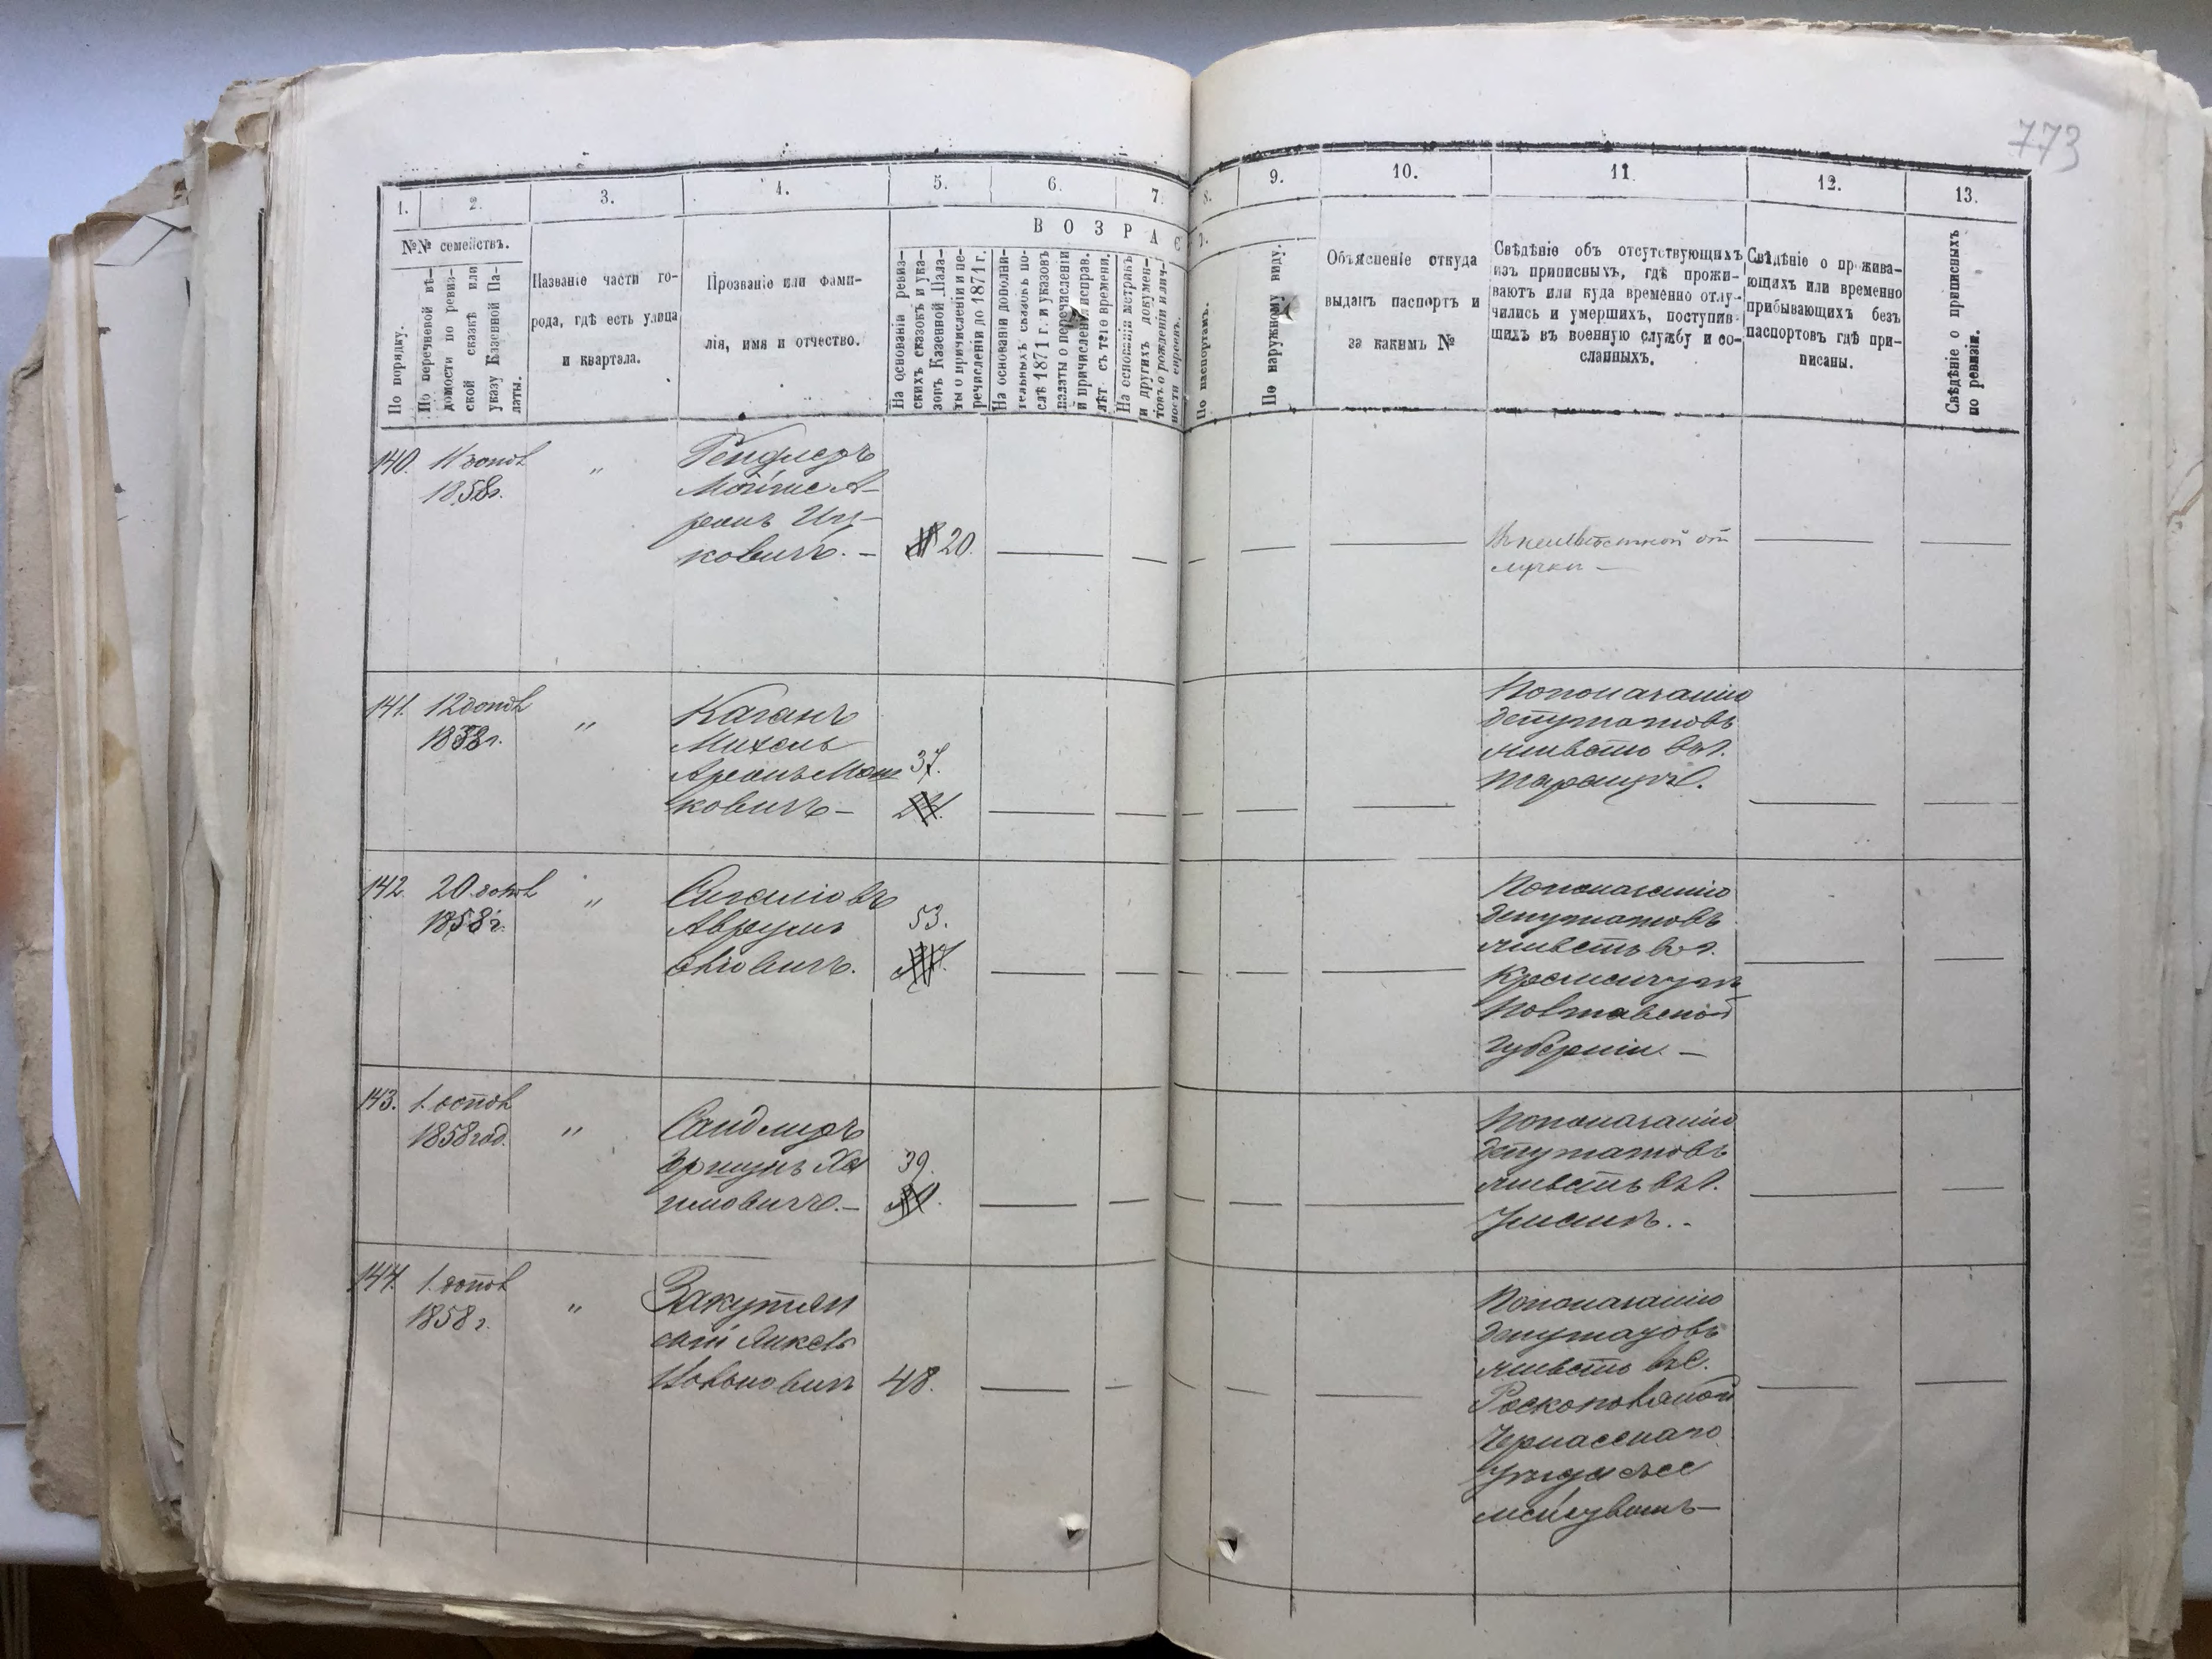 773
1.
2.
3.
4.
5.
6.
7.
8.
9.
10.
11.
12.
13.
№№ семействъ.
ВОЗРАС
По порядку.
По перечневой вѣ-
домости по ревиз-
ской сказкѣ или
указу Казенной Па-
латы.
Названіе части го-
рода, гдѣ есть улица
и квартала.
Прозваніе или фами-
лія, имя и отчество.
На основаніи ревиз-
скихъ сказокъ и ука-
зовъ Казенной Пала-
ты о причисленіи и пе-
речисленіи до 1871 г.
На основаніи дополни-
тельныхъ сказокъ по-
слѣ 1871 г. и указовъ
палаты о перечисленіи
и причисленіи исправ.
лѣт съ того времени.
На основаніи метрикъ
и другихъ докумен-
товъ о рожденіи или
По паспортамъ.
По наружному виду.
Объясненіе откуда
выданъ паспортъ и
за какимъ №
Свѣдѣніе объ отсутствующихъ
изъ приписныхъ, гдѣ прожи-
ваютъ или куда временно отлу-
чились и умершихъ, поступив-
шихъ въ военную службу и со-
сланныхъ.
Свѣдѣніе о прожива-
ющихъ или временно
прибывающихъ безъ
паспортовъ гдѣ при-
писаны.
Свѣдѣніе о приписныхъ
по ревизіи.
140. 11 допол
1858г. "
Мойше А-
ронъ Иц-
ковичъ. — 20.
Въ неизвѣстной от
лучки —
141. 12 допол
1858г. "
Каганъ
Михель
Аронъ Мош
ковичъ — 37.
По показанію
депутатовъ
живетъ въ г.
Таращѣ.
142. 20 допол
1858г. "
Аврумъ 53.
По показанію
депутатовъ
живетъ въ г.
Кременчугѣ
Полтавской
губерніи. —
143. 1. допол
1858 год. "
Сандлеръ
Хаи
мовичъ. — 39.
По показанію
депутатовъ
живетъ въ г.
Умани. -
144. 1. допол
1858 г. "
Закутян
скій Янкель
48.
По показанію
депутатовъ
живетъ въ с.
Черкасскаго
уѣзда